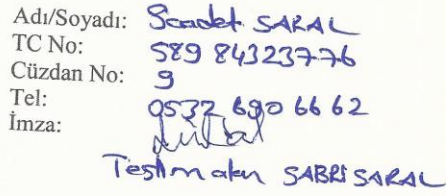 Adı/Soyadı: Saadet SARAL
TC No: 589 84323776
Cüzdan No: 9
Tel: 0532 690 66 62
İmza:
Teslim alan SABRİ SARAL